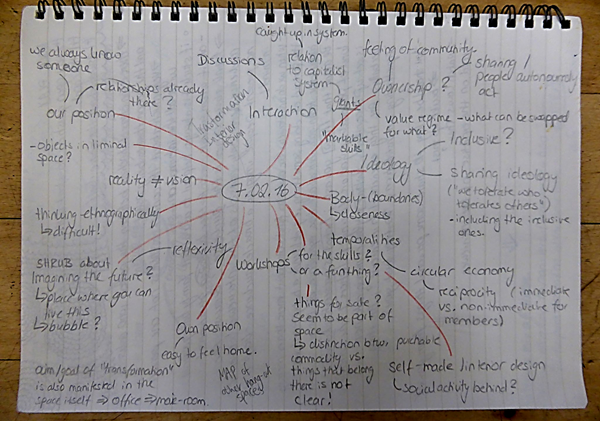 caught up in system.
we always know
someone
relationships already
there?
our position
Discussions
Interaction
Transformation
interior
design
relation
to capitalist
system
Giants
"invaluable
skills"
feeling of community
Ownership?
sharing /
people autonomously
act
value regime - what can be swapped
for what?
Inclusive?
Ideology
sharing ideology
("we tolerate who
tolerates others")
- including the inclusive
ones.
- objects in liminal
space?
reality ≠ vision
7.02.16
Body - (boundaries)
↳ closeness
thinking ethnographically
↳ difficult!
reflexivity
temporalities
circular economy
reciprocity (immediate
vs. non-immediate for
members)
workshops
for the skills?
or a fun thing?
SHRUB about
Imagining the future?
↳ place where you can
live this
↳ bubble?
things for sale?
seem to be part of
space
↳ distinction btw. purchable
commodity vs.
things that belong
there is not
clear!
Own position
easy to feel home.
self-made interior design
↳ social activity behind?
aim/goal of "transformation"
is also manifested in the
space itself ⇒ office ⇒ main-room.
MAP of
other
spaces